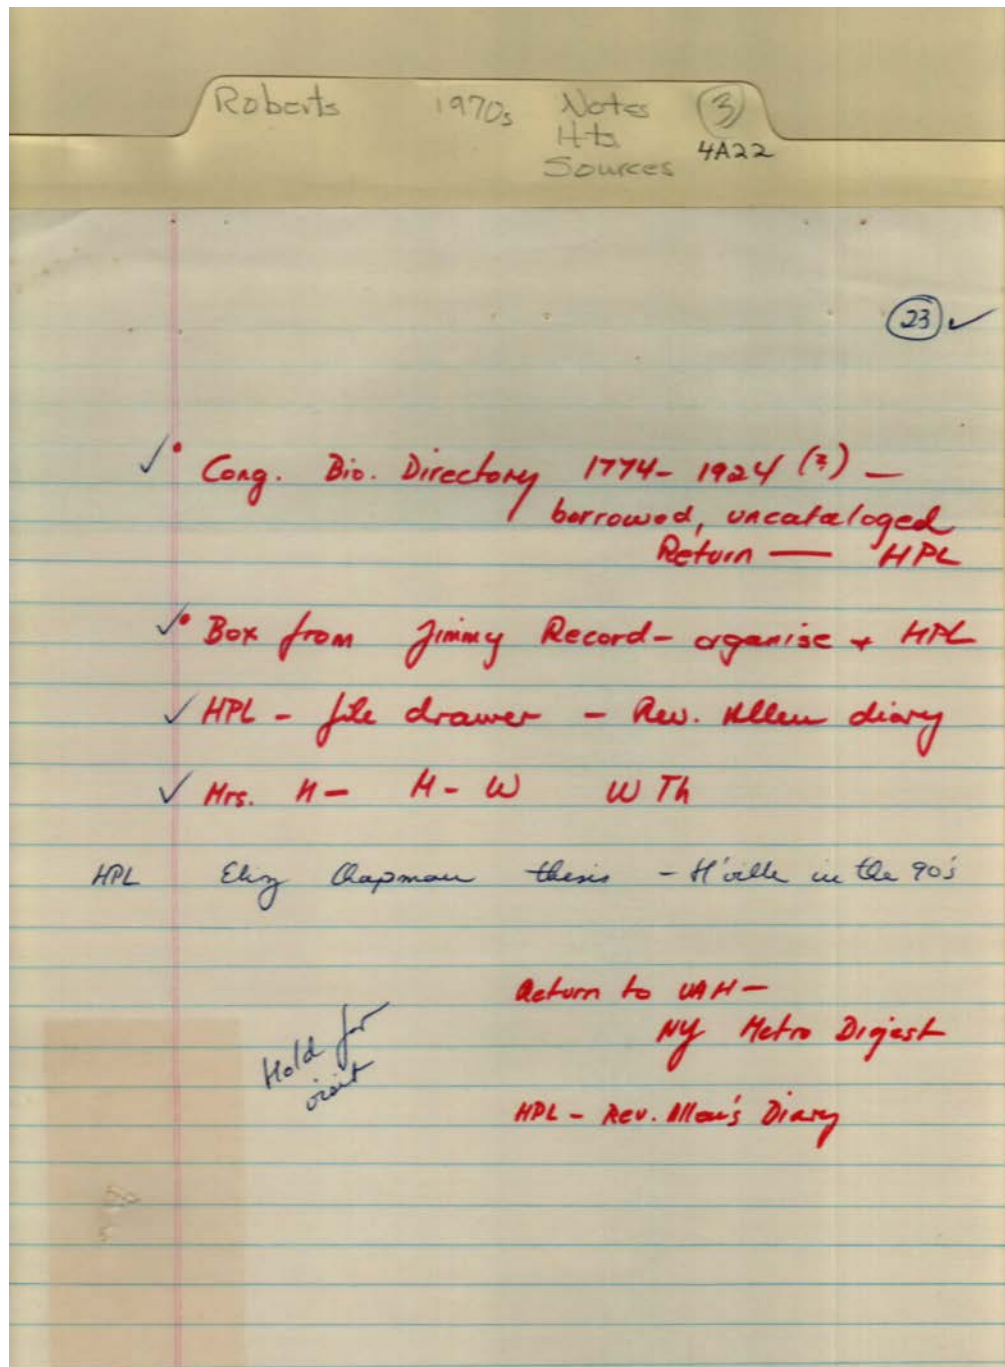 Roberts 1970s Notes 3
Hts. 4A22
Sources
23 ✓
✓• Cong. Bio. Directory 1774-1924 (?) —
borrowed, uncataloged
Return — HPL
✓• Box from Jimmy Record - organise + HPL
✓ HPL - file drawer - Rev. Allen diary
✓ Mrs. H- H-W W Th
HPL Eliz Chapman thesis - H'ville in the 90's
Return to UAH -
NY Metro Digest
Hold for
visit
HPL - Rev. Allen's Diary